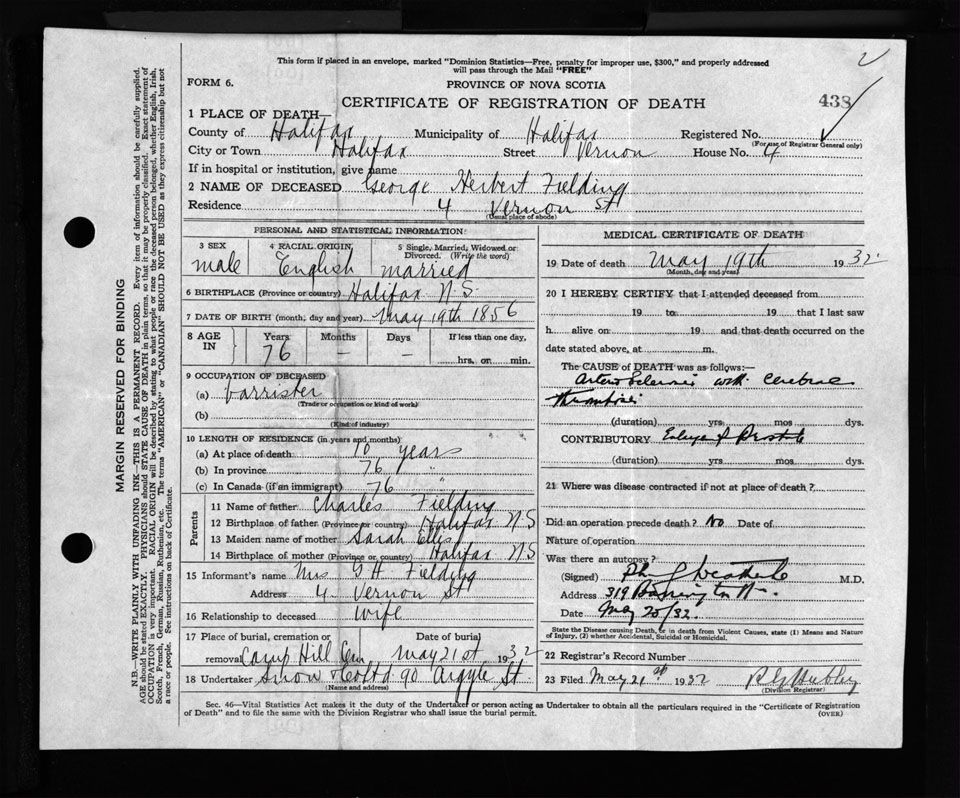 This form if placed in an envelope, marked "Dominion Statistics—Free, penalty for improper use, $300," and properly addressed
will pass through the Mail "FREE"
FORM 6.
PROVINCE OF NOVA SCOTIA
CERTIFICATE OF REGISTRATION OF DEATH
438
1 PLACE OF DEATH—
County of Halifax Municipality of Halifax Registered No.
(For use of Registrar General only)
City or Town Halifax Street Vernon House No. 4
If in hospital or institution, give name
2 NAME OF DECEASED George Herbert Fielding
Residence 4 Vernon St
(Usual place of abode)
PERSONAL AND STATISTICAL INFORMATION
3 SEX male
4 RACIAL ORIGIN English
5 Single, Married, Widowed or Divorced. (Write the word) married
6 BIRTHPLACE (Province or country) Halifax N.S.
7 DATE OF BIRTH (month, day and year) May 19th 1856
8 AGE IN Years 76 Months — Days — If less than one day, hrs. or min.
9 OCCUPATION OF DECEASED
(a) barrister
(Trade or occupation or kind of work)
(b)
(Kind of industry)
10 LENGTH OF RESIDENCE (in years and months)
(a) At place of death 10 years
(b) In province 76 "
(c) In Canada (if an immigrant) 76 "
Parents
11 Name of father Charles Fielding
12 Birthplace of father (Province or country) Halifax NS
13 Maiden name of mother Sarah Ellis
14 Birthplace of mother (Province or country) Halifax NS
15 Informant's name Mrs G H Fielding
Address 4 Vernon St
16 Relationship to deceased wife
17 Place of burial, cremation or removal Camp Hill Cem Date of burial May 21st 1932
18 Undertaker Snow & Co Ltd 90 Argyle St.
(Name and address)
MEDICAL CERTIFICATE OF DEATH
19 Date of death May 19th 1932
(Month, day and year)
20 I HEREBY CERTIFY that I attended deceased from
19 to 19 that I last saw
h alive on 19 and that death occurred on the
date stated above, at m.
The CAUSE of DEATH was as follows:—
with cerebral
(duration) yrs. mos. dys.
CONTRIBUTORY
(duration) yrs. mos. dys.
21 Where was disease contracted if not at place of death?
Did an operation precede death? No Date of
Nature of operation
Was there an autopsy?
(Signed) M.D.
Address 319 Barrington
Date May 20/32.
State the Disease causing Death, or in death from Violent Causes, state (1) Means and Nature
of Injury, (2) whether Accidental, Suicidal or Homicidal.
22 Registrar's Record Number
23 Filed May 21st 1932
(Division Registrar)
Sec. 46—Vital Statistics Act makes it the duty of the Undertaker or person acting as Undertaker to obtain all the particulars required in the "Certificate of Registration
of Death" and to file the same with the Division Registrar who shall issue the burial permit.
(OVER)
MARGIN RESERVED FOR BINDING
N.B.—WRITE PLAINLY WITH UNFADING INK—THIS IS A PERMANENT RECORD. Every item of information should be carefully supplied.
AGE should be stated EXACTLY. PHYSICIANS should STATE CAUSE OF DEATH in plain terms, so that it may be properly classified. Exact statement of
OCCUPATION is very important. RACIAL ORIGIN will be described by stating to what people or race the deceased person belonged, whether English, Irish,
Scotch, French, German, Russian, Ruthenian, etc. The terms "AMERICAN" or "CANADIAN" SHOULD NOT BE USED as they express citizenship but not
a race or people. See instructions on back of Certificate.